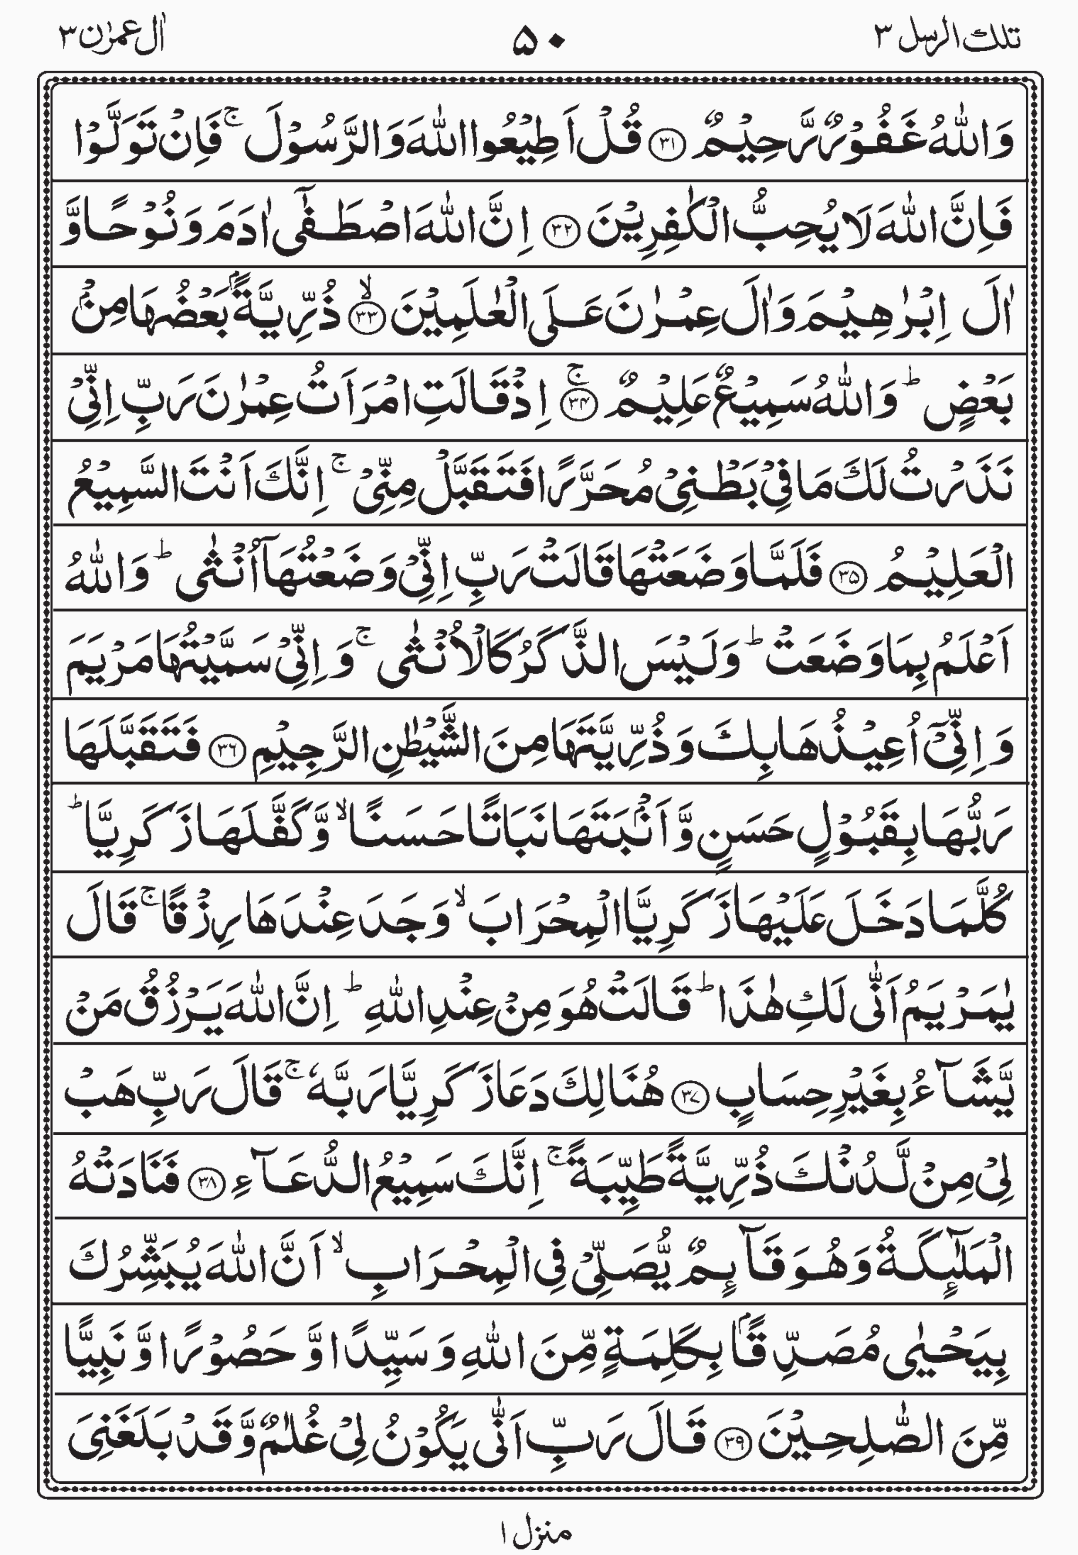 تلك الرسل ٣ ٥٠ اٰل عمرٰن ٣
وَاللّٰهُ غَفُوْرٌ رَّحِيْمٌ ﴿٣١﴾ قُلْ اَطِيْعُوا اللّٰهَ وَالرَّسُوْلَ ۚ فَاِنْ تَوَلَّوْا
فَاِنَّ اللّٰهَ لَا يُحِبُّ الْكٰفِرِيْنَ ﴿٣٢﴾ اِنَّ اللّٰهَ اصْطَفٰٓى اٰدَمَ وَنُوْحًا وَّ
اٰلَ اِبْرٰهِيْمَ وَاٰلَ عِمْرٰنَ عَلَى الْعٰلَمِيْنَ ۙ﴿٣٣﴾ ذُرِّيَّةًۢ بَعْضُهَا مِنْۢ
بَعْضٍ ؕ وَاللّٰهُ سَمِيْعٌ عَلِيْمٌ ۚ﴿٣٤﴾ اِذْ قَالَتِ امْرَاَتُ عِمْرٰنَ رَبِّ اِنِّىْ
نَذَرْتُ لَكَ مَا فِىْ بَطْنِىْ مُحَرَّرًا فَتَقَبَّلْ مِنِّىْ ۚ اِنَّكَ اَنْتَ السَّمِيْعُ
الْعَلِيْمُ ﴿٣٥﴾ فَلَمَّا وَضَعَتْهَا قَالَتْ رَبِّ اِنِّىْ وَضَعْتُهَاۤ اُنْثٰى ؕ وَاللّٰهُ
اَعْلَمُ بِمَا وَضَعَتْ ؕ وَلَيْسَ الذَّكَرُ كَالْاُنْثٰى ۚ وَاِنِّىْ سَمَّيْتُهَا مَرْيَمَ
وَاِنِّىْۤ اُعِيْذُهَا بِكَ وَذُرِّيَّتَهَا مِنَ الشَّيْطٰنِ الرَّجِيْمِ ﴿٣٦﴾ فَتَقَبَّلَهَا
رَبُّهَا بِقَبُوْلٍ حَسَنٍ وَّاَنْۢبَتَهَا نَبَاتًا حَسَنًا ۙ وَّكَفَّلَهَا زَكَرِيَّا ؕ
كُلَّمَا دَخَلَ عَلَيْهَا زَكَرِيَّا الْمِحْرَابَ ۙ وَجَدَ عِنْدَهَا رِزْقًا ۚ قَالَ
يٰمَرْيَمُ اَنّٰى لَكِ هٰذَا ؕ قَالَتْ هُوَ مِنْ عِنْدِ اللّٰهِ ؕ اِنَّ اللّٰهَ يَرْزُقُ مَنْ
يَّشَآءُ بِغَيْرِ حِسَابٍ ﴿٣٧﴾ هُنَالِكَ دَعَا زَكَرِيَّا رَبَّهٗ ۚ قَالَ رَبِّ هَبْ
لِىْ مِنْ لَّدُنْكَ ذُرِّيَّةً طَيِّبَةً ۚ اِنَّكَ سَمِيْعُ الدُّعَآءِ ﴿٣٨﴾ فَنَادَتْهُ
الْمَلٰٓئِكَةُ وَهُوَ قَآئِمٌ يُّصَلِّىْ فِى الْمِحْرَابِ ۙ اَنَّ اللّٰهَ يُبَشِّرُكَ
بِيَحْيٰى مُصَدِّقًۢا بِكَلِمَةٍ مِّنَ اللّٰهِ وَسَيِّدًا وَّحَصُوْرًا وَّنَبِيًّا
مِّنَ الصّٰلِحِيْنَ ﴿٣٩﴾ قَالَ رَبِّ اَنّٰى يَكُوْنُ لِىْ غُلٰمٌ وَّقَدْ بَلَغَنِىَ
منزل ١